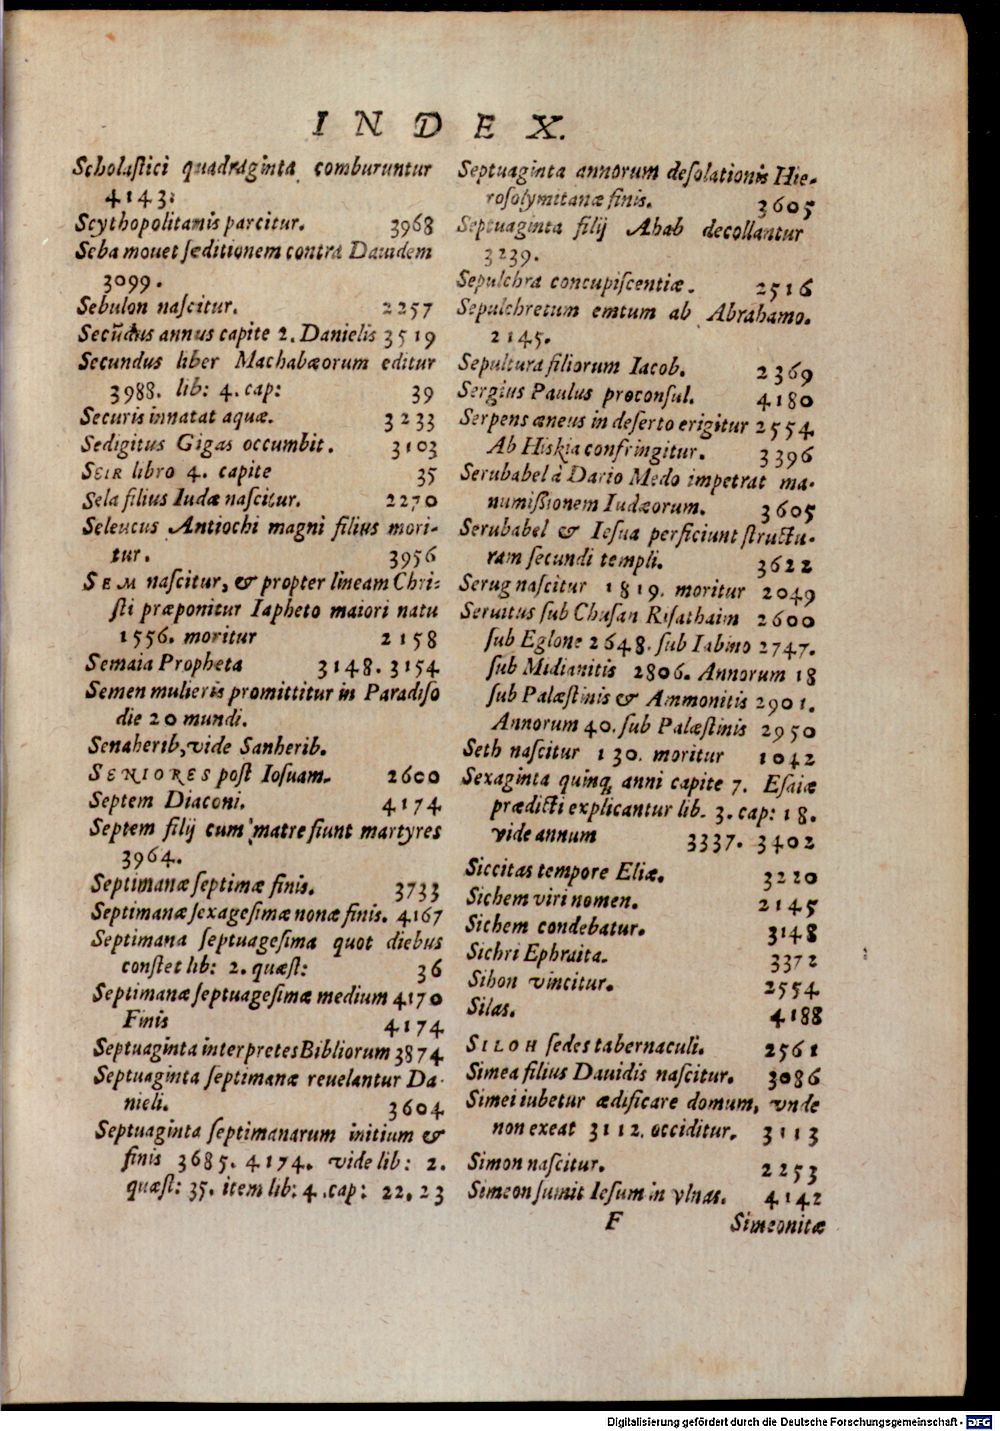 INDEX.
Scholastici quadraginta comburuntur
4143.
Scythopolitanis parcitur. 3968
Seba mouet seditionem contra Dauidem
3099.
Sebulon nascitur. 2257
Secũdus annus capite 2. Danielis 3519
Secundus liber Machabæorum editur
3988. lib: 4. cap: 39
Securis innatat aquæ. 3233
Sedigitus Gigas occumbit. 3103
SEIR libro 4. capite 35
Sela filius Iudæ nascitur. 2270
Seleucus Antiochi magni filius mori-
tur. 3956
SEM nascitur, & propter lineam Chri-
sti præponitur Iapheto maiori natu
1556. moritur 2158
Semaia Propheta 3148. 3154
Semen mulieris promittitur in Paradiso
die 20 mundi.
Senaherib, vide Sanherib.
SENIORES post Iosuam. 2600
Septem Diaconi. 4174
Septem filij cum matre fiunt martyres
3964.
Septimanæ septimæ finis. 3733
Septimanæ sexagesimæ nonæ finis. 4167
Septimana septuagesima quot diebus
constet lib: 2. quæst: 36
Septimanæ septuagesimæ medium 4170
Finis 4174
Septuaginta interpretes Bibliorum 3874
Septuaginta septimanæ reuelantur Da-
nieli. 3604
Septuaginta septimanarum initium &
finis 3685. 4174. vide lib: 2.
quæst: 35. item lib: 4. cap: 22, 23
Septuaginta annorum desolationis Hie-
rosolymitanæ finis. 3605
Septuaginta filij Ahab decollantur
3239.
Sepulchra concupiscentiæ. 2516
Sepulchretum emtum ab Abrahamo.
2145.
Sepultura filiorum Iacob. 2369
Sergius Paulus proconsul. 4180
Serpens æneus in deserto erigitur 2554
Ab Hiskia confringitur. 3396
Serubabel à Dario Medo impetrat ma-
numißionem Iudæorum. 3605
Serubabel & Iesua perficiunt structu-
ram secundi templi. 3622
Serug nascitur 1819. moritur 2049
Seruitus sub Chusan Risathaim 2600
sub Eglone 2648. sub Iabino 2747.
sub Midianitis 2806. Annorum 18
sub Palæstinis & Ammonitis 2901.
Annorum 40. sub Palæstinis 2950
Seth nascitur 130. moritur 1042
Sexaginta quinq; anni capite 7. Esaiæ
prædicti explicantur lib. 3. cap: 18.
vide annum 3337. 3402
Siccitas tempore Eliæ. 3220
Sichem viri nomen. 2145
Sichem condebatur. 3148
Sichri Ephraita. 3372
Sihon vincitur. 2554
Silas. 4188
SILOH sedes tabernaculi. 2561
Simea filius Dauidis nascitur. 3086
Simei iubetur ædificare domum, vnde
non exeat 3112. occiditur. 3113
Simon nascitur. 2253
Simeon sumit Iesum in vlnas. 4142
F Simeonitæ
Digitalisierung gefördert durch die Deutsche Forschungsgemeinschaft - DFG